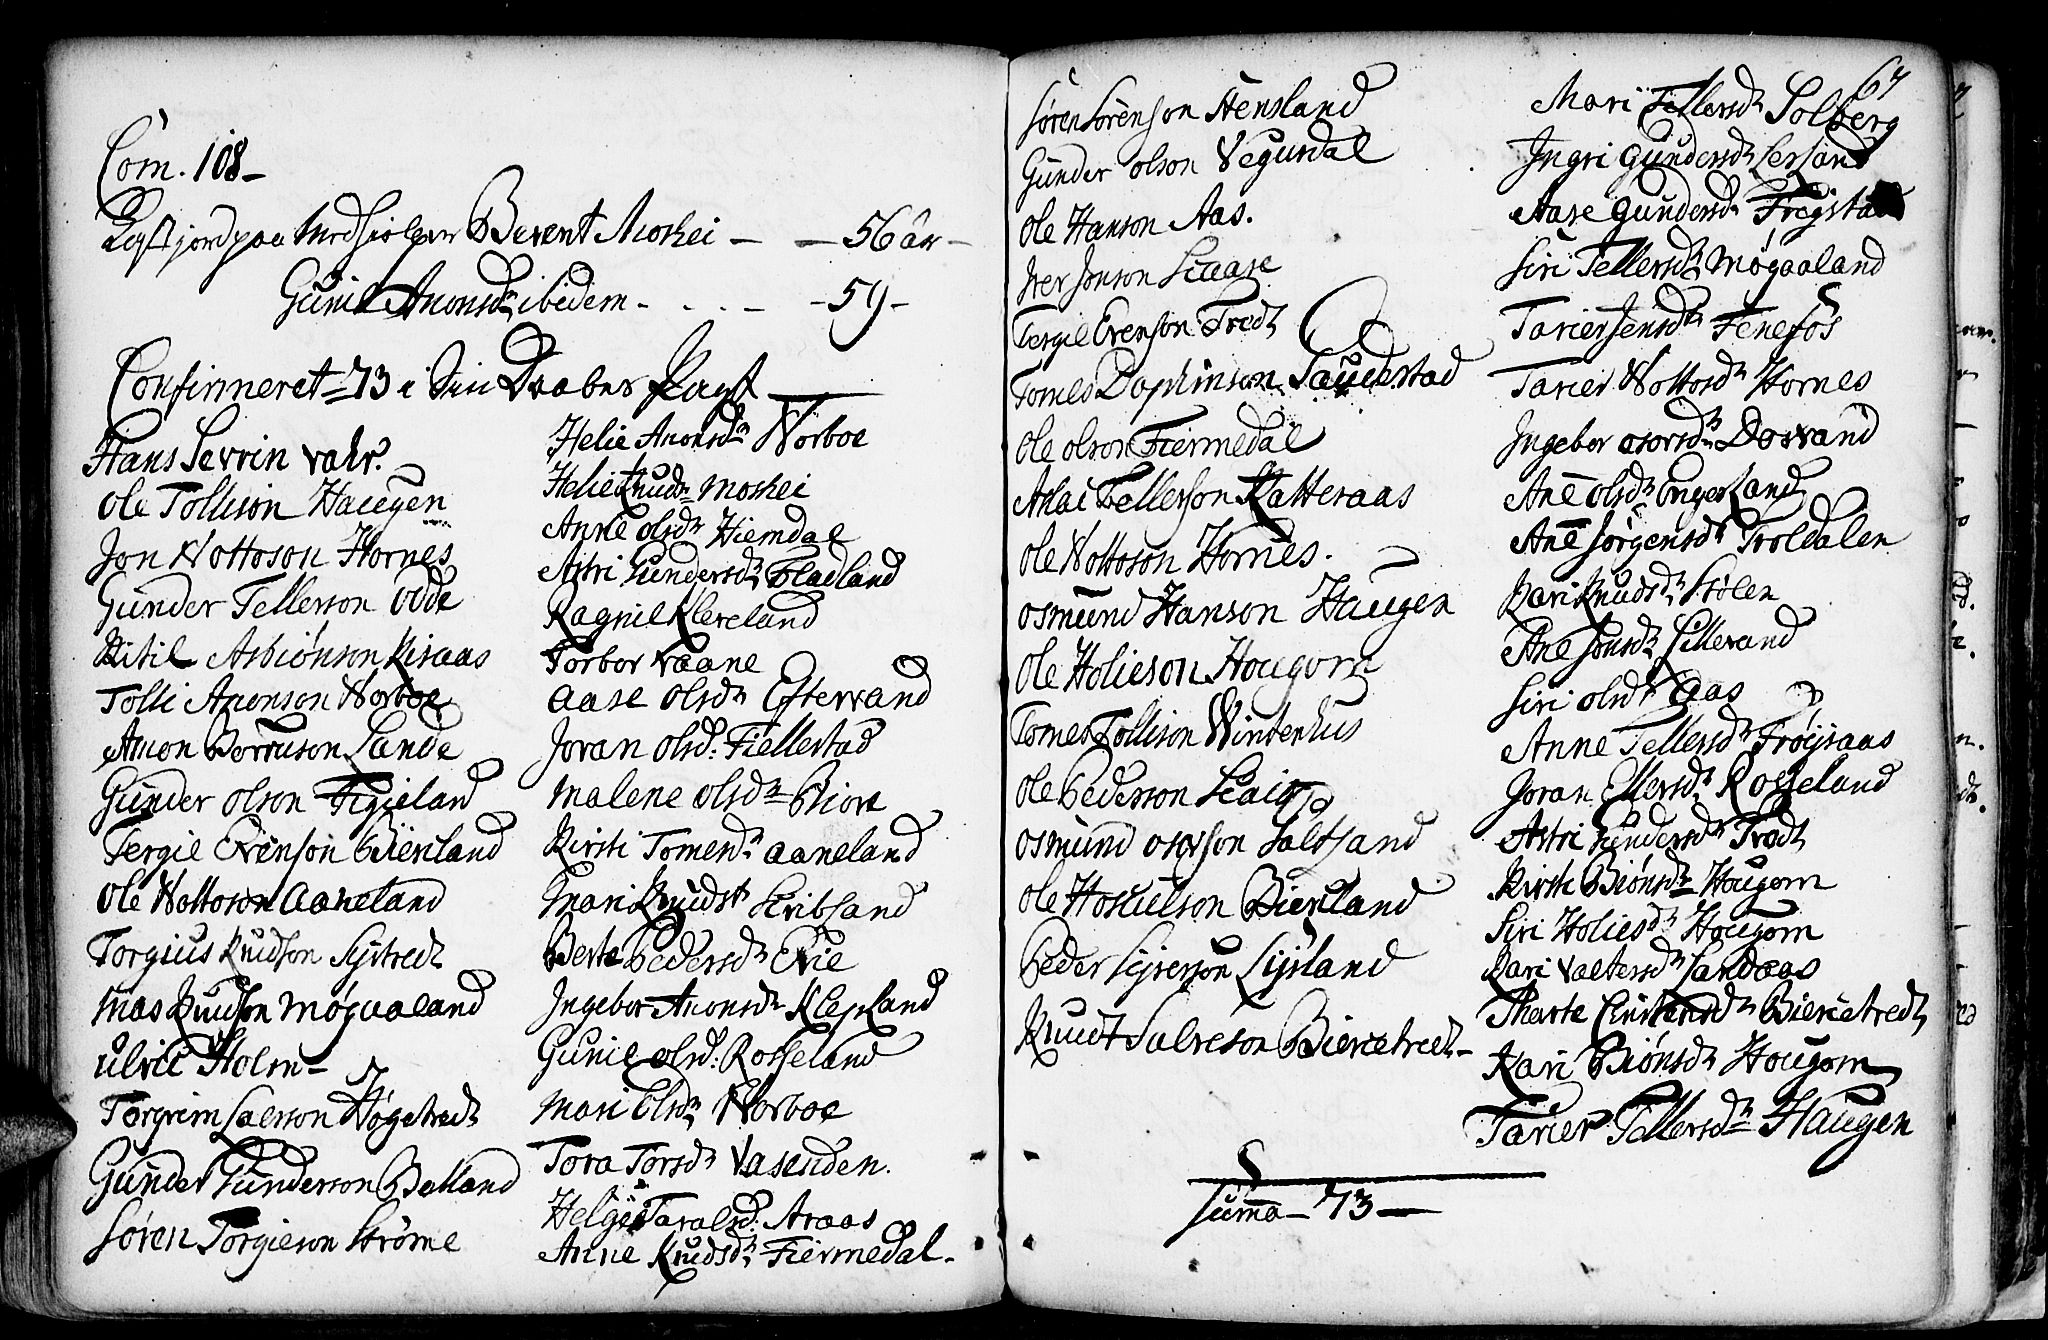 Com. 108 –
Kast jord paa Berent Moskei – – 56 år –
Gunil Anonsdr ibidem – . . – – 59 –
Confirmeret 73 i Sin Daabes Pagt
Hans Sevrin vahr.
Ole Tollison Haugen
Jon Nottoson Hornes
Gunder Tellerson Odde
Kitil Asbiønson Risaas
Tolli Anonson Norboe
Anon Borruson Lande
Gunder olson Figieland
Tergie Evenson Bieriland
Ole Nottoson Aaneland
Torgius Knudson Systredt
Mas Knudson Møgaaland
ulric Holm –
Torgrim Salerson Høgetredt
Gunder Gunderson Bolland
Søren Torgieson Strøme
Helie Anonsdr Norboe
Helie Knudsdr Moskei
Anne olsdr Hiemdal
Astri Gundersdr Fladland
Ragnil Kleveland
Torbor Vaane
Aase olsdr Eftevand
Joran olsd: Fiellestad
Malene olsdr Biore
Kirsti Tomesdr Aaneland
Mari Knudsdr Kribsand
Berte Pedersdr Evie
Ingebor Anonsdr Klepland
Gunil olsd: Rosseland
Mari Olsdr Norboe
Tora Torsdr Vasenden.
Helgie Taralsd: Araas
Anne Knudsdr Fiermedal –
67
Søren Sørenson Stensland
Gunder olson Vegusdal
Ole Hanson Aas.
Iver Jonson Skaase
Tergie Evenson Tredt
Tomes Saudestad
Ole olson Fiermedal
Aslai Tellerson Katteraas
Ole Nottoson Hornes.
Osmund Hanson Haugen
Ole Holieson Hougom
Tomes Tollison Winterhus
Ole Pederson Skaig
Osmund Saltsand
Ole Hoskulson Bieriland
Peder Syverson Lysland
Knudt Salveson Biercetredt –
Mari Tellersdr Solberg
Ingri Gundersdr Lersand
Aase Gundersdr Fregstad
Siri Tellersdr Møgaaland
Tarier Jensdr Fenefos
Tarier Nottosdr Hornes
Ingebor Dosvand
Ane olsdr Engesland
Ane Jørgensdr Troldalen
Kari Knudsdr Stølen
Ane Jonsdr Lillevand
Siri olsdr Aas
Anne Tellersdr Frøysaas
Joran Ellersdr Rosseland
Astri Gundersdr Tredt
Kirsti Biønsdr Hougom
Siri Holiesdr Hougom
Kari Valtersdr Sandaas
Marte Biercetredt
Kari Biønsdr Hougom
Tarier Tellersdr Haugen
Summa – 73 –